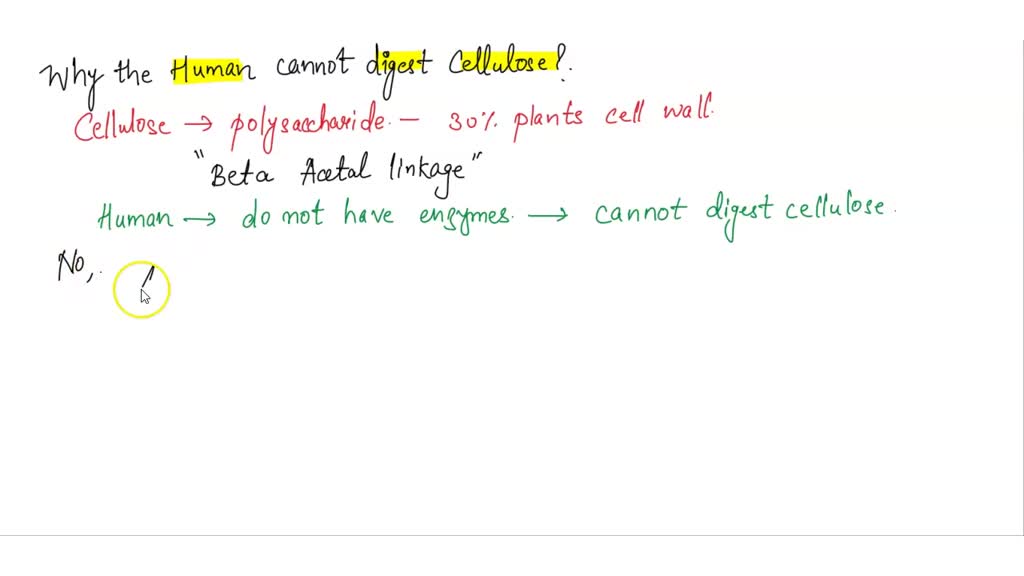 Why the Human cannot digest Cellulose?.
Cellulose → polysaccharide. — 30% plants cell wall.
"Beta Acetal linkage"
Human → do not have enzymes. → cannot digest cellulose.
No,.